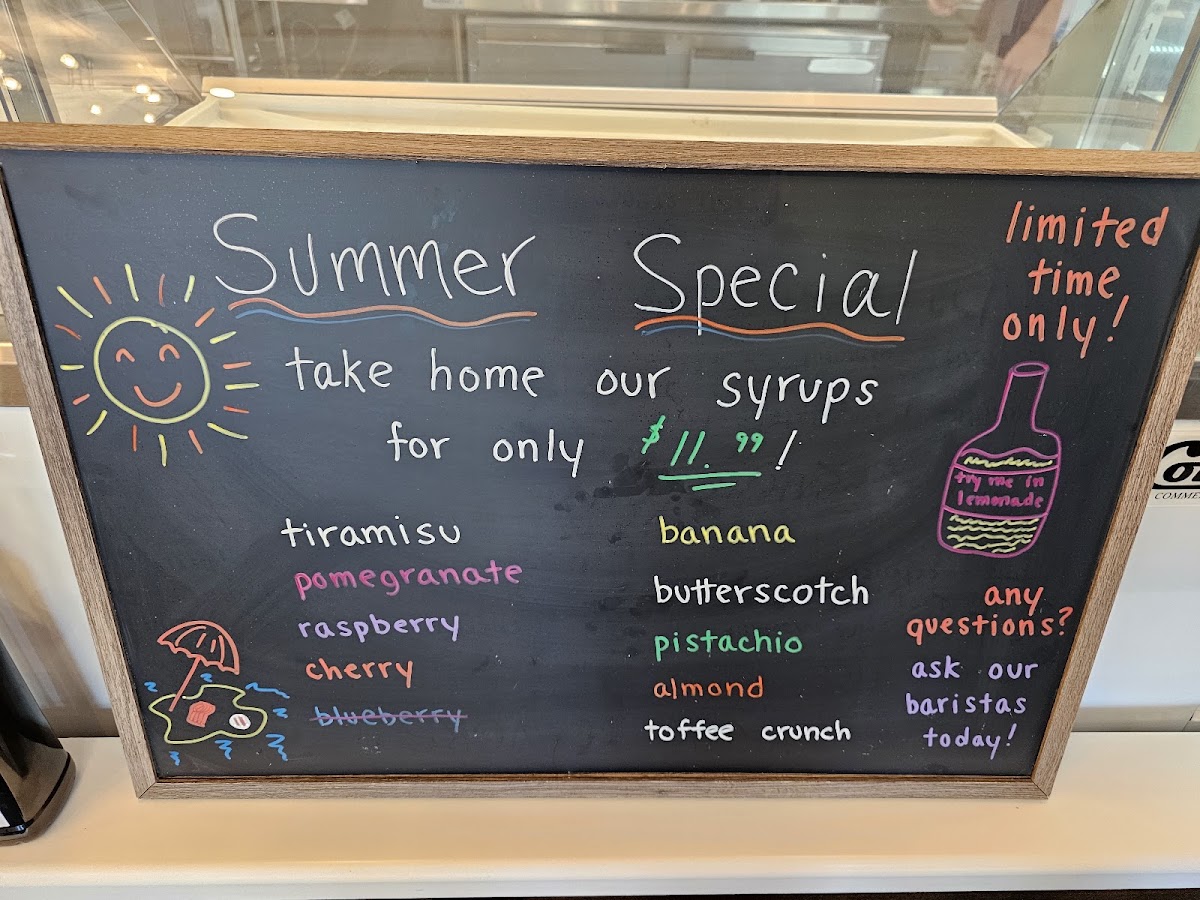 Summer Special
take home our syrups
for only $11.99!
limited
time
only!
try me in
lemonade
tiramisu
pomegranate
raspberry
cherry
blueberry
banana
butterscotch
pistachio
almond
toffee crunch
any
questions?
ask our
baristas
today!